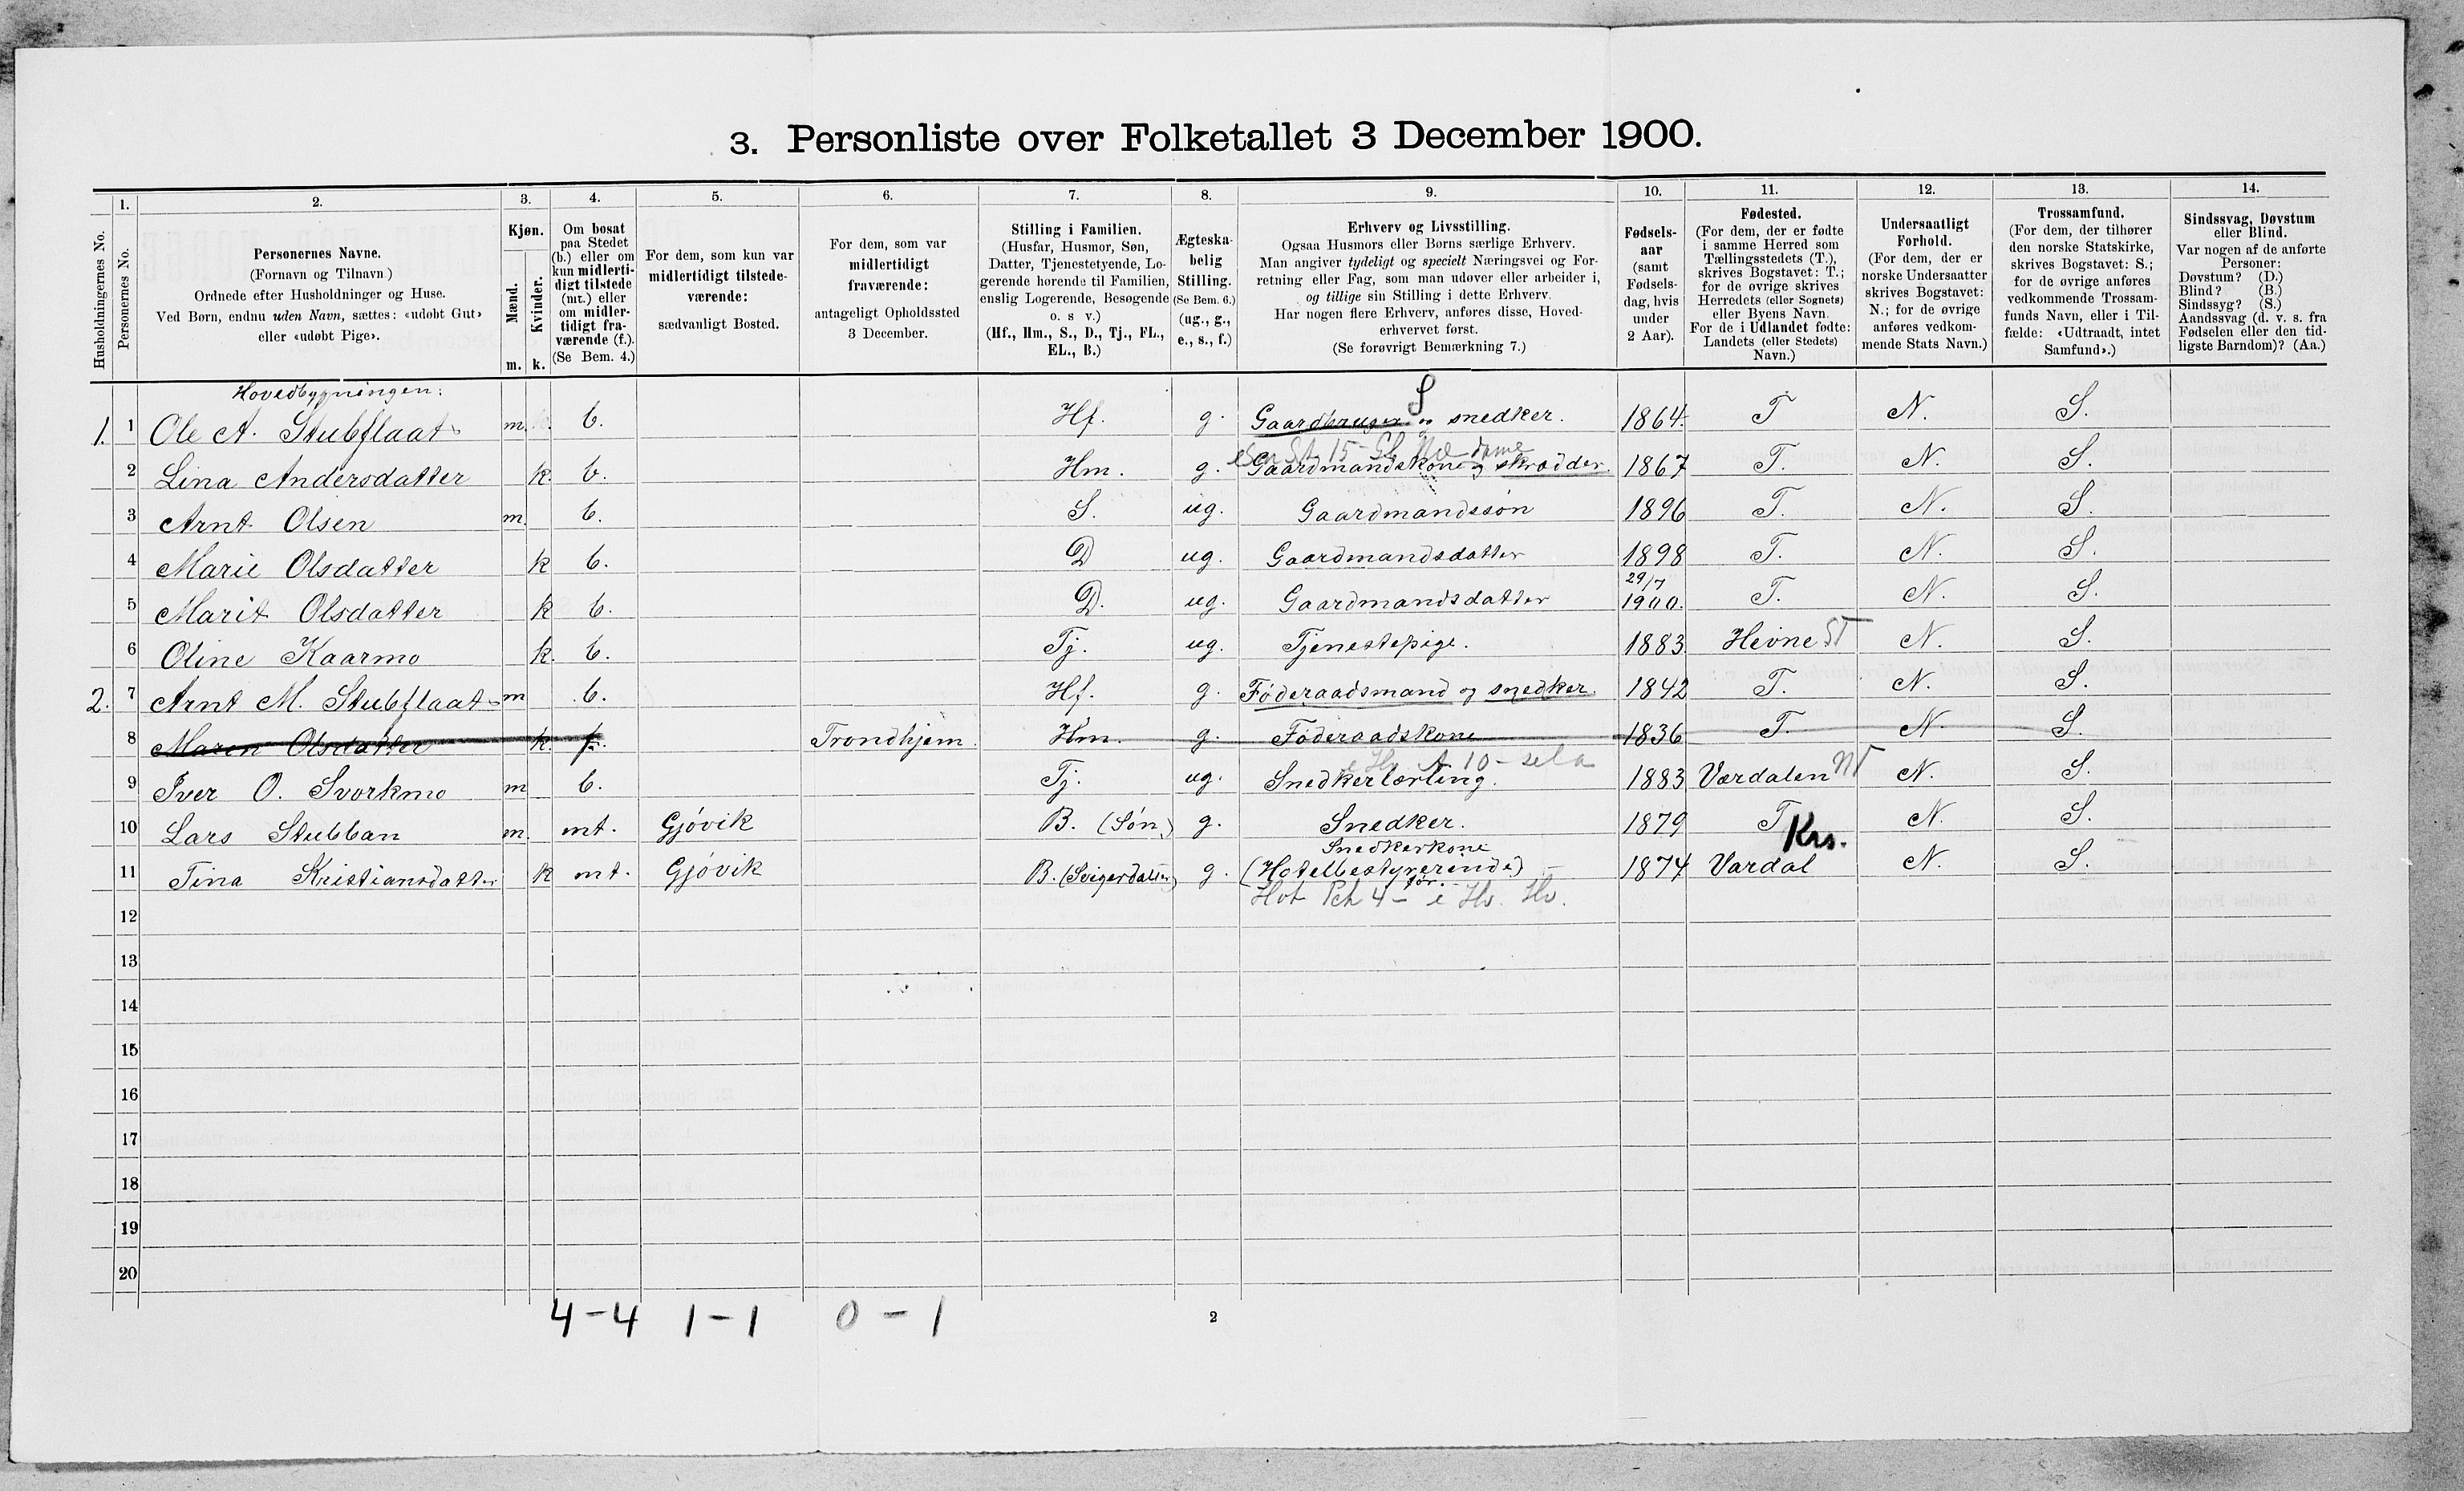 3. Personliste over Folketallet 3 December 1900.
1. 2. 3. 4. 5. 6. 7. 8. 9. 10. 11. 12. 13. 14.
Husholdningernes No.
Personernes No.
Personernes Navne.
(Fornavn og Tilnavn.)
Ordnede efter Husholdninger og Huse.
Ved Børn, endnu uden Navn, sættes: «udøbt Gut»
eller «udøbt Pige».
Kjøn.
Mænd.
Kvinder.
m. k.
Om bosat
paa Stedet
(b.) eller om
kun midlerti-
digt tilstede
(mt.) eller
om midler-
tidigt fra-
værende (f.).
(Se Bem. 4.)
For dem, som kun var
midlertidigt tilstede-
værende:
sædvanligt Bosted.
For dem, som var
midlertidigt
fraværende:
antageligt Opholdssted
3 December.
Stilling i Familien.
(Husfar, Husmor, Søn,
Datter, Tjenestetyende, Lo-
gerende hørende til Familien,
enslig Logerende, Besøgende
o. s v.)
(Hf., Hm., S., D., Tj., FL.,
EL., B.)
Ægteska-
belig
Stilling.
(Se Bem. 6.)
(ug., g.,
e., s., f.)
Erhverv og Livsstilling.
Ogsaa Husmors eller Børns særlige Erhverv.
Man angiver tydeligt og specielt Næringsvei og For-
retning eller Fag, som man udøver eller arbeider i,
og tillige sin Stilling i dette Erhverv.
Har nogen flere Erhverv, anføres disse, Hoved-
erhvervet først.
(Se forøvrigt Bemærkning 7.)
Fødsels-
aar
(samt
Fødsels-
dag, hvis
under
2 Aar).
Fødested.
(For dem, der er fødte
i samme Herred som
Tællingsstedets (T.),
skrives Bogstavet: T.;
for de øvrige skrives
Herredets (eller Sognets)
eller Byens Navn.
For de i Udlandet fødte:
Landets (eller Stedets)
Navn.)
Undersaatligt
Forhold.
(For dem, der er
norske Undersaatter
skrives Bogstavet:
N.; for de øvrige
anføres vedkom-
mende Stats Navn.)
Trossamfund.
(For dem, der tilhører
den norske Statskirke,
skrives Bogstavet: S.;
for de øvrige anføres
vedkommende Trossam-
funds Navn, eller i Til-
fælde: «Udtraadt, intet
Samfund».)
Sindssvag, Døvstum
eller Blind.
Var nogen af de anførte
Personer:
Døvstum? (D.)
Blind? (B.)
Sindssyg? (S.)
Aandssvag (d. v. s. fra
Fødselen eller den tid-
ligste Barndom)? (Aa.)
Hovedbygningen: S
1. 1 Ole A. Stubflaat m. b. Hf. g. Gaardbruger og snedker. 1864. T N. S.
2 Lina Andersdatter k. b. Hm. g. Gaardmandskone og skrædder. 1867 T. N. S.
3 Arnt Olsen m. b. S. ug. Gaardmandssøn 1896 T. N. S.
4 Marie Olsdatter k b. D ug. Gaardmandsdatter 1898 T. N. S.
5 Marit Olsdatter k b. D. ug. Gaardmandsdatter 29/7 1900. T. N. S.
6 Oline Kaarmo k. b. Tj. ug. Tjenestepige. 1883 Hevne ST N. S.
2. 7 Arnt M. Stubflaat m b. Hf. g. Føderaadsmand og snedker. 1842 T. N. S.
8 Maren Olsdatter k. f. Trondhjem. Hm. g. Føderaadskone 1836 T. N S.
9 Iver O. Svorkmo m b. Tj. ug. Snedkerlærling. 1883 Værdalen NT N. S.
10 Lars Stubban m. mt. Gjøvik B. (Søn) g. Snedker. 1879 T N. S.
Snedkerkone Krs.
11 Tina Kristiansdatter k mt. Gjøvik B. (Svigerdatter) g. (Hotelbestyrerinde) 1874 Vardal N. S.
12
13
14
15
16
17
18
19
20
4-4 1-1 0-1 2